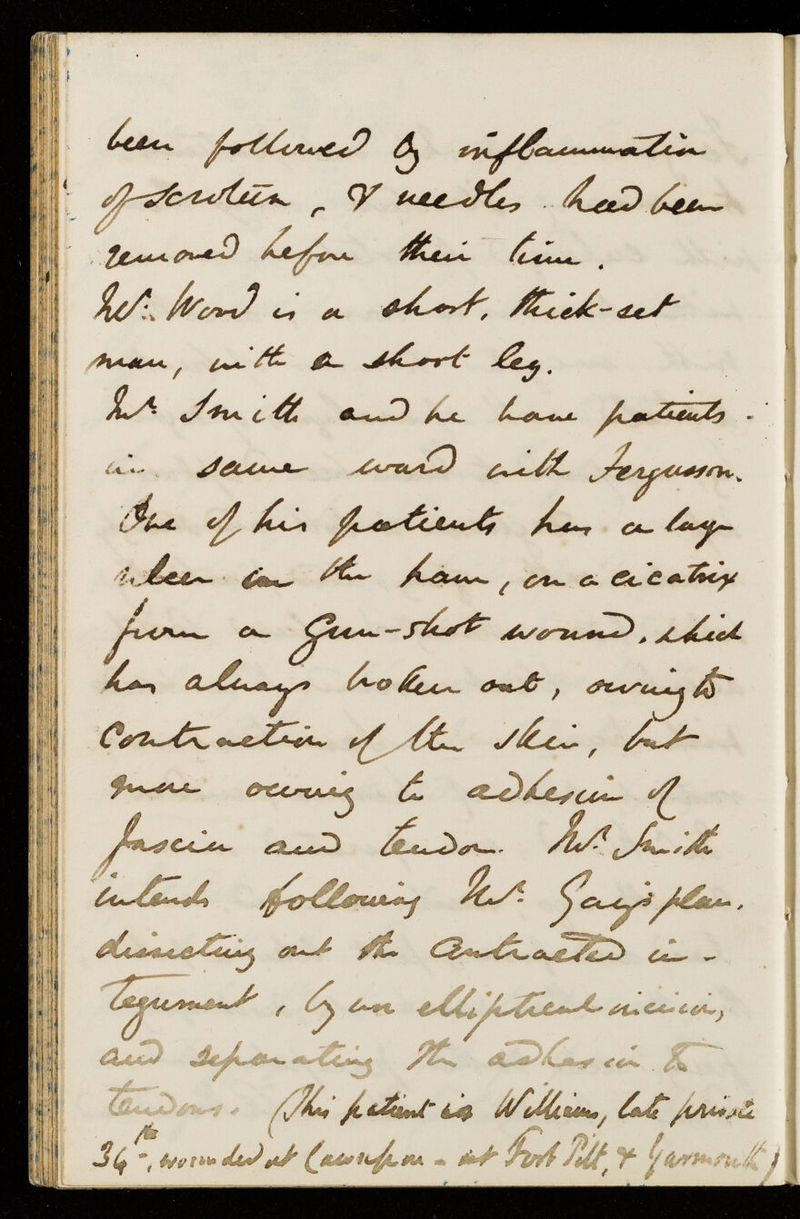 been followed by inflammation
of scrotum, & needles had been
removed before their time.
Mr. Wood is a short, thick-set
man, with a short leg.
Mr. Smith and he have patients
in same ward with Fergusson.
One of his patients has a large
ulcer in the ham, on a cicatrix
from a Gun-shot wound, which
has always broken out, owing to
contraction of the skin, but
more owing to adhesion of
fascia and tendon. Mr. Smith
intends following Mr. Gay's plan,
dissecting out the contracted in-
tegument, by an elliptical incision,
and separating the adhesion to
tendons. (This patient is Williams, late private
34th, wounded at Cawnpore - at Fort Pitt, & Yarmouth)